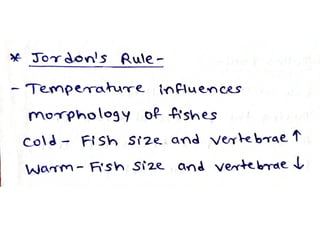 * Jordon's Rule-
- Temperature influences
morphology of fishes
Cold - Fish size and vertebrae ↑
Warm - Fish size and vertebrae ↓